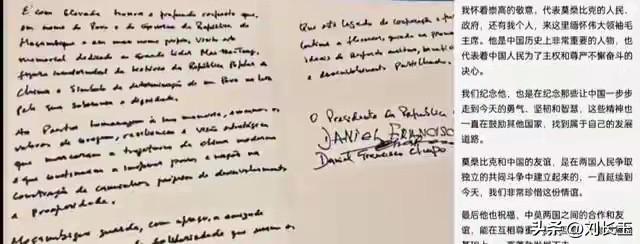 É com elevada honra e profundo respeito que,
em nome do Povo e do Governo da República de
Moçambique e em meu nome próprio, visito este
memorial dedicado ao grande líder Mao Tsé-Tung,
figura incontornável da história da República Popular da
China e Símbolo da determinação de um Povo na luta
pela sua Soberania e dignidade.
Ao Prestar homenagem à sua memória, evocamos os
valores de coragem, resiliência e visão estratégica
que marcaram a trajectória da China moderna
e que continuam a inspirar povos e nações na
construção de caminhos próprios de desenvolvimento
e prosperidade.
Moçambique guarda, com apreço, a amizade
solidariedade que
Que este legado de cooperação e
continue a florescer, guiado
ideais de respeito mútuo,
e desenvolvimento partilhado.
O Presidente da República
DANIEL FRANCISCO
Daniel Francisco Chapo
我怀着崇高的敬意，代表莫桑比克的人民、
政府，还有我个人，来这里缅怀伟大领袖毛
主席。他是中国历史上非常重要的人物，也
代表着中国人民为了主权和尊严不懈奋斗
的决心。
我们纪念他，也是在纪念那些让中国一步步
走到今天的勇气、坚韧和智慧，这些精神也
一直在鼓励其他国家，找到属于自己的发展
道路。
莫桑比克和中国的友谊，是在两国人民争取
独立的共同斗争中建立起来的，一直延续到
今天，我们非常珍惜这份情谊。
最后他也祝福，中莫两国之间的合作和友
谊，能在互相尊重
头条@刘长玉